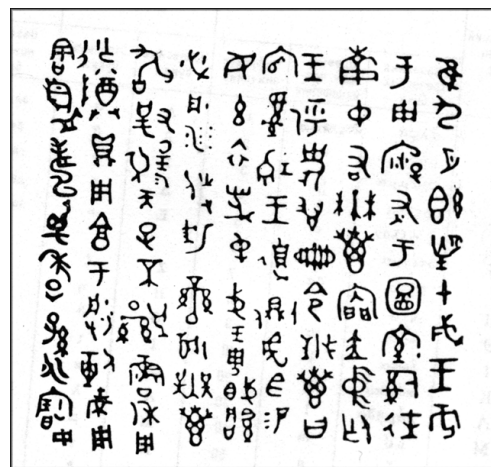 隹九月既望甲戌王各
于周廟述于圖室司徒
南中右無叀內門立中廷
王乎史翏冊令無叀曰
官司王遉側虎臣
易女玄衣黹屯戈琱戟
必彤沙攸勒鑾旂無叀
敢對揚天子不顯魯休
用乍尊鼎用享于朕剌考
用割眉壽萬年子孫永寶用